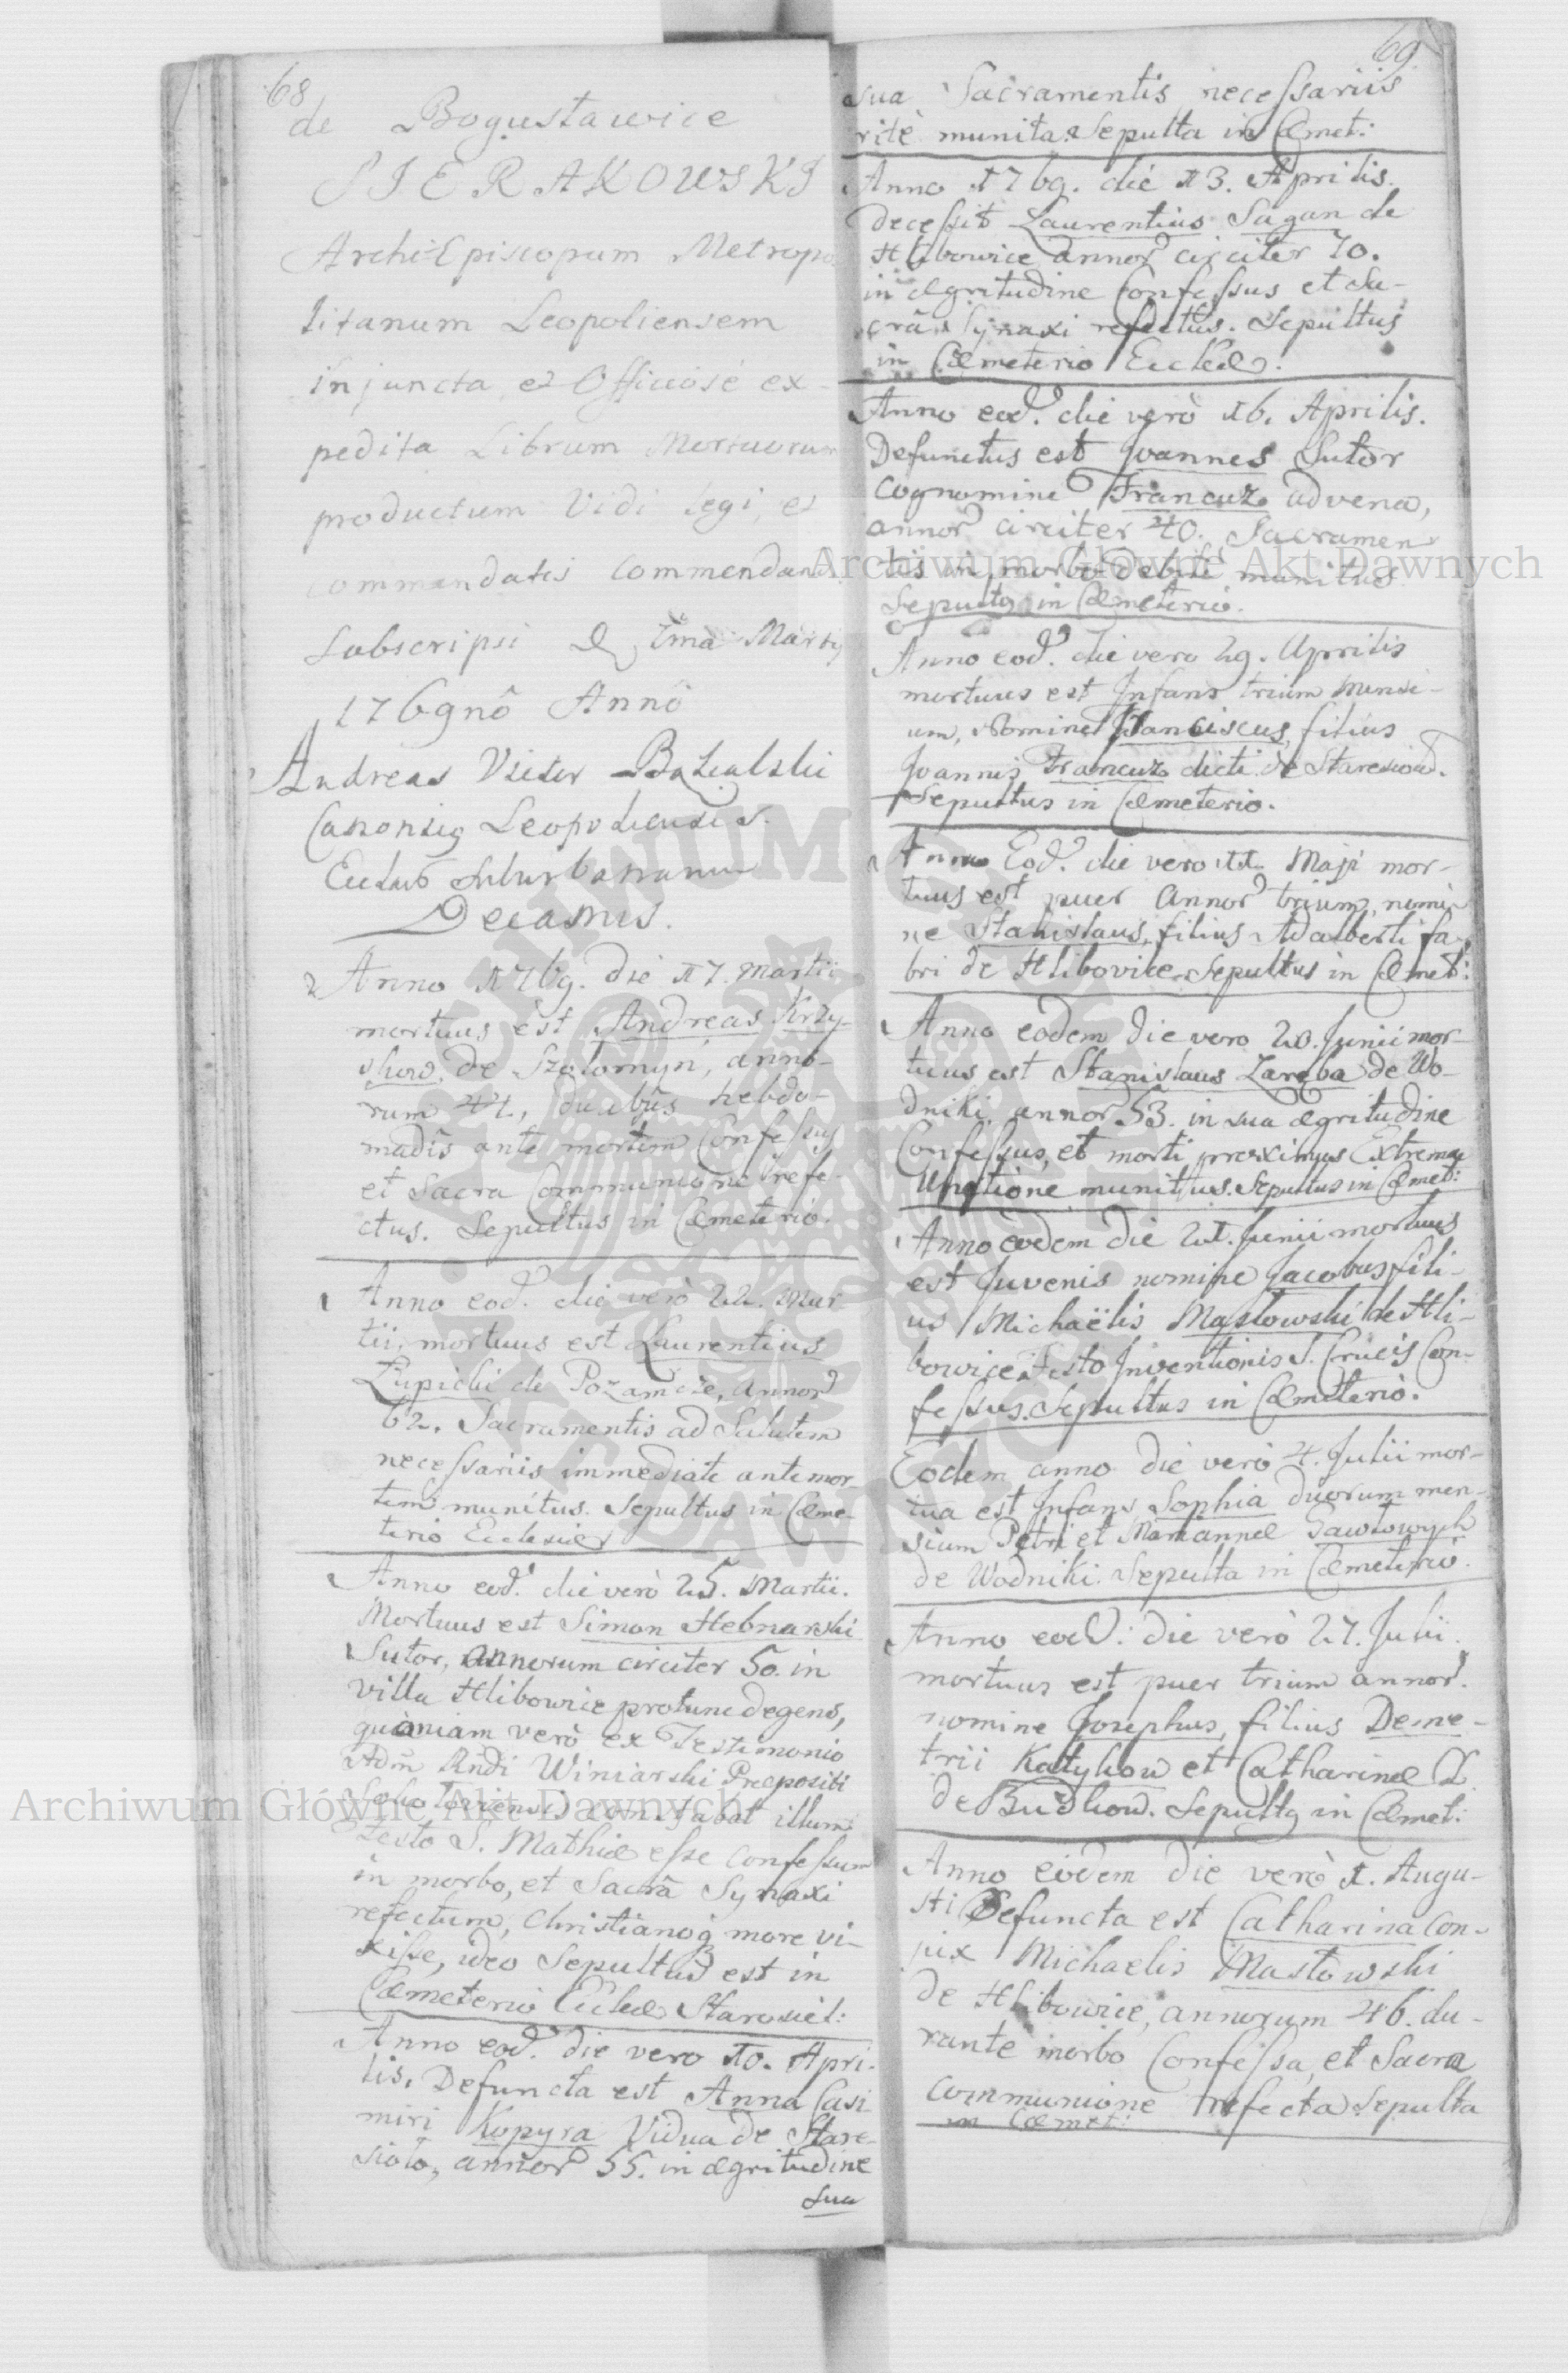 68
de Bogusławice
SIERAKOWSKI
ArchiEpiscopum Metropo
litanum Leopoliensem
injuncta et Officiosè ex-
pedita Librum Mortuorum
productum Vidi legi, et
commendatis commendan
Subscripsi D Ima Martij
1769nô Annô
Andreas Victor
Canonicq Leopoliensis.
Ecclae Suburbanam
Decanus.
Anno 1769. die 17. Martii
mortuus est Andreas Krzy-
show de Szołomyn, anno-
rum 42, duabus hebdo-
madis ante mortem Confessus
et Sacra Communione refe-
ctus. Sepultus in Cæmeterio.
Anno eod. die verò 22. Mar
tii, mortuus est Laurentius
Łupicki de Pozamcze, annor
62. Sacramentis ad Salutem
necessariis immediate ante mor
tem munitus. Sepultus in Cæme-
terio Ecclesiæ
Anno eod. die verò 25. Martii.
Mortuus est Simon Hebnarski
Sutor, annorum circiter 50. in
villa Hlibowice protunc degens,
quoniam verò ex Testimonio
Adm Rndi Winiarski Præpositi
constabat illum
Festo S. Mathiæ esse confessum
in morbo, et Sacrâ Synaxi
refectum, Christianoq more vi-
xisse, ideo Sepultus est in
Cæmeterio Ecclæ Starosiel:
Anno eod. die vero 10. Apri-
lis. Defuncta est Anna Casi
miri Kopyra Vidua de Stare-
sioło, annor 55. in ægritudine
sua
69.
sua Sacramentis necessariis
ritè munita. Sepulta in Cæmet:
Anno 1769. die 13. Aprilis.
decessit Laurentius Sagan de
Hlibowice annor circiter 70.
in ægritudine Confessus et Sa-
crâ Synaxi refectus. Sepultus
in Cæmeterio Ecclæ.
Anno eod. die verò 16. Aprilis.
Defunctus est Joannes Sutor
cognomine Francuz advena,
annor circiter 40. Sacramen
tis in morbo debitè munitus
Sepultq in Cæmeterio.
Anno eod. die vero 29. Aprilis
mortuus est Infans trium mensi-
um, nomine Franciscus, filius
Joannis Francuz dicti de Staresioło.
Sepultus in Cæmeterio.
Anno Eod. die vero 11. Maji mor-
tuus est puer annor trium, nomi
ne Stanislaus, filius Adalberti fa-
bri de Hlibovice. Sepultus in Cæmet:
Anno eodem die vero 20. Junii mor-
tuus est Stanislaus Zaręba de Wo-
dniki annor 53. in sua ægritudine
Confessus, et morti proximus Extrema
Unctione munitus. Sepultus in Cæmet:
Anno eodem die 21. Junii mortuus
est Juvenis nomine Jacobus fili-
us Michaëlis Masłowski de Hli-
bowice. Festo Inventionis S. Crucis Con-
fessus. Sepultus in Cæmeterio.
Eodem anno die verò 4. Julii mor-
tua est Infans Sophia duorum men-
sium Petri et Mariannæ Gawłowych
de Wodniki. Sepulta in Cæmeterio.
Anno eod: die verò 27. Julii.
mortuus est puer trium annor.
nomine Josephus, filius Deme-
trii Katykow et Catharinæ L.
de Budkow. Sepultq in Cæmet:
Anno eodem die verò 1. Augu-
sti Defuncta est Catharina Con-
jux Michaelis Masłowski
de Hlibowice, annorum 46. du-
rante morbo Confessa, et Sacra
communione refecta. Sepulta
in Cæmet:
Archiwum Główne Akt Dawnych
Archiwum Główne Akt Dawnych